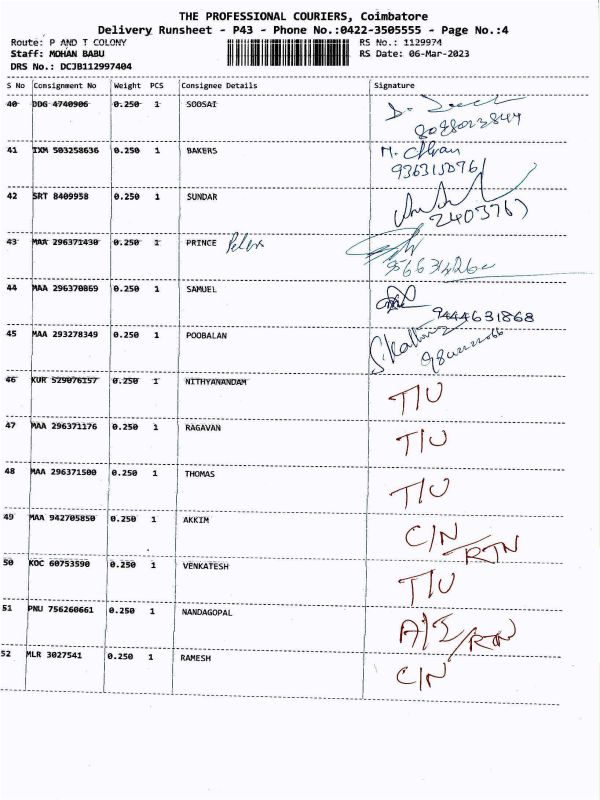 THE PROFESSIONAL COURIERS, Coimbatore
Delivery Runsheet - P43 - Phone No.:0422-3505555 - Page No.:4
Route: P AND T COLONY RS No.: 1129974
Staff: MOHAN BABU RS Date: 06-Mar-2023
DRS No.: DCJB112997404
S No Consignment No Weight PCS Consignee Details Signature
40 DDG 4740906 0.250 1 SOOSAI
41 IXM 503258636 0.250 1 BAKERS M.
9363150761
42 SRT 8409958 0.250 1 SUNDAR
2403767
43 MAA 296371430 0.250 1 PRINCE
44 MAA 296370869 0.250 1 SAMUEL
9444631868
45 MAA 293278349 0.250 1 POOBALAN
46 KUR 529076157 0.250 1 NITHYANANDAM T/U
47 MAA 296371176 0.250 1 RAGAVAN T/U
48 MAA 296371500 0.250 1 THOMAS T/U
49 MAA 942705850 0.250 1 AKKIM C/N/RTN
50 KOC 60753590 0.250 1 VENKATESH T/U
51 PNU 756260661 0.250 1 NANDAGOPAL A/S/RTN
52 MLR 3027541 0.250 1 RAMESH C/N